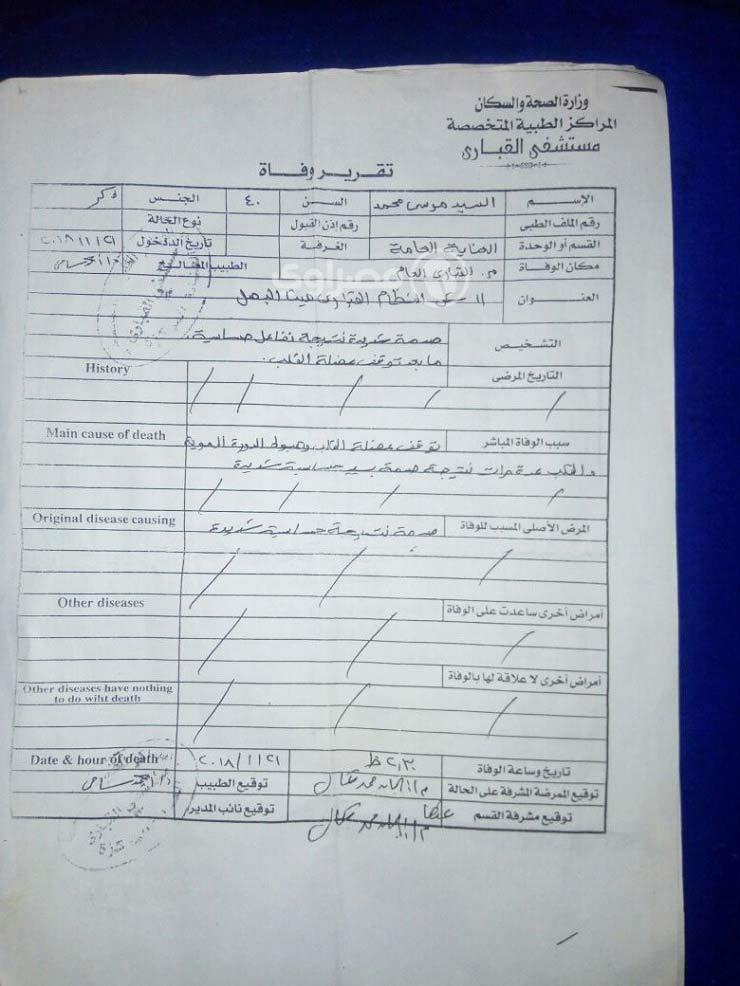 وزارة الصحة والسكان
المراكز الطبية المتخصصة
مستشفى القبارى
تقرير وفاة
الإسم السيد موسى محمد السن ٤٠ الجنس ذكر
رقم الملف الطبى رقم إذن القبول نوع الحالة
القسم أو الوحدة العناية العامة الغرفة تاريخ الدخول ٢٠١٨/١/٢١
مكان الوفاة م. القبارى العام الطبيب المعالج
مصراوي
العنوان مينا البصل
التشخيص صدمة شديدة نتيجة تفاعل حساسية.
ما بعد توقف عضلة القلب.
History التاريخ المرضى
Main cause of death سبب الوفاة المباشر توقف عضلة القلب وهبوط الدورة الدموية
والقلب عدة مرات نتيجة صدمة بسبب حساسية شديدة
Original disease causing المرض الأصلى المسبب للوفاة صدمة نتيجة حساسية شديدة
Other diseases أمراض أخرى ساعدت على الوفاة
Other diseases have nothing to do wiht death أمراض أخرى لا علاقة لها بالوفاة
Date & hour of death ٢٠١٨/١/٢١ ٢,٣٠ ظ تاريخ وساعة الوفاة
توقيع الممرضة المشرفة على الحالة توقيع الطبيب
توقيع مشرفة القسم توقيع نائب المدير